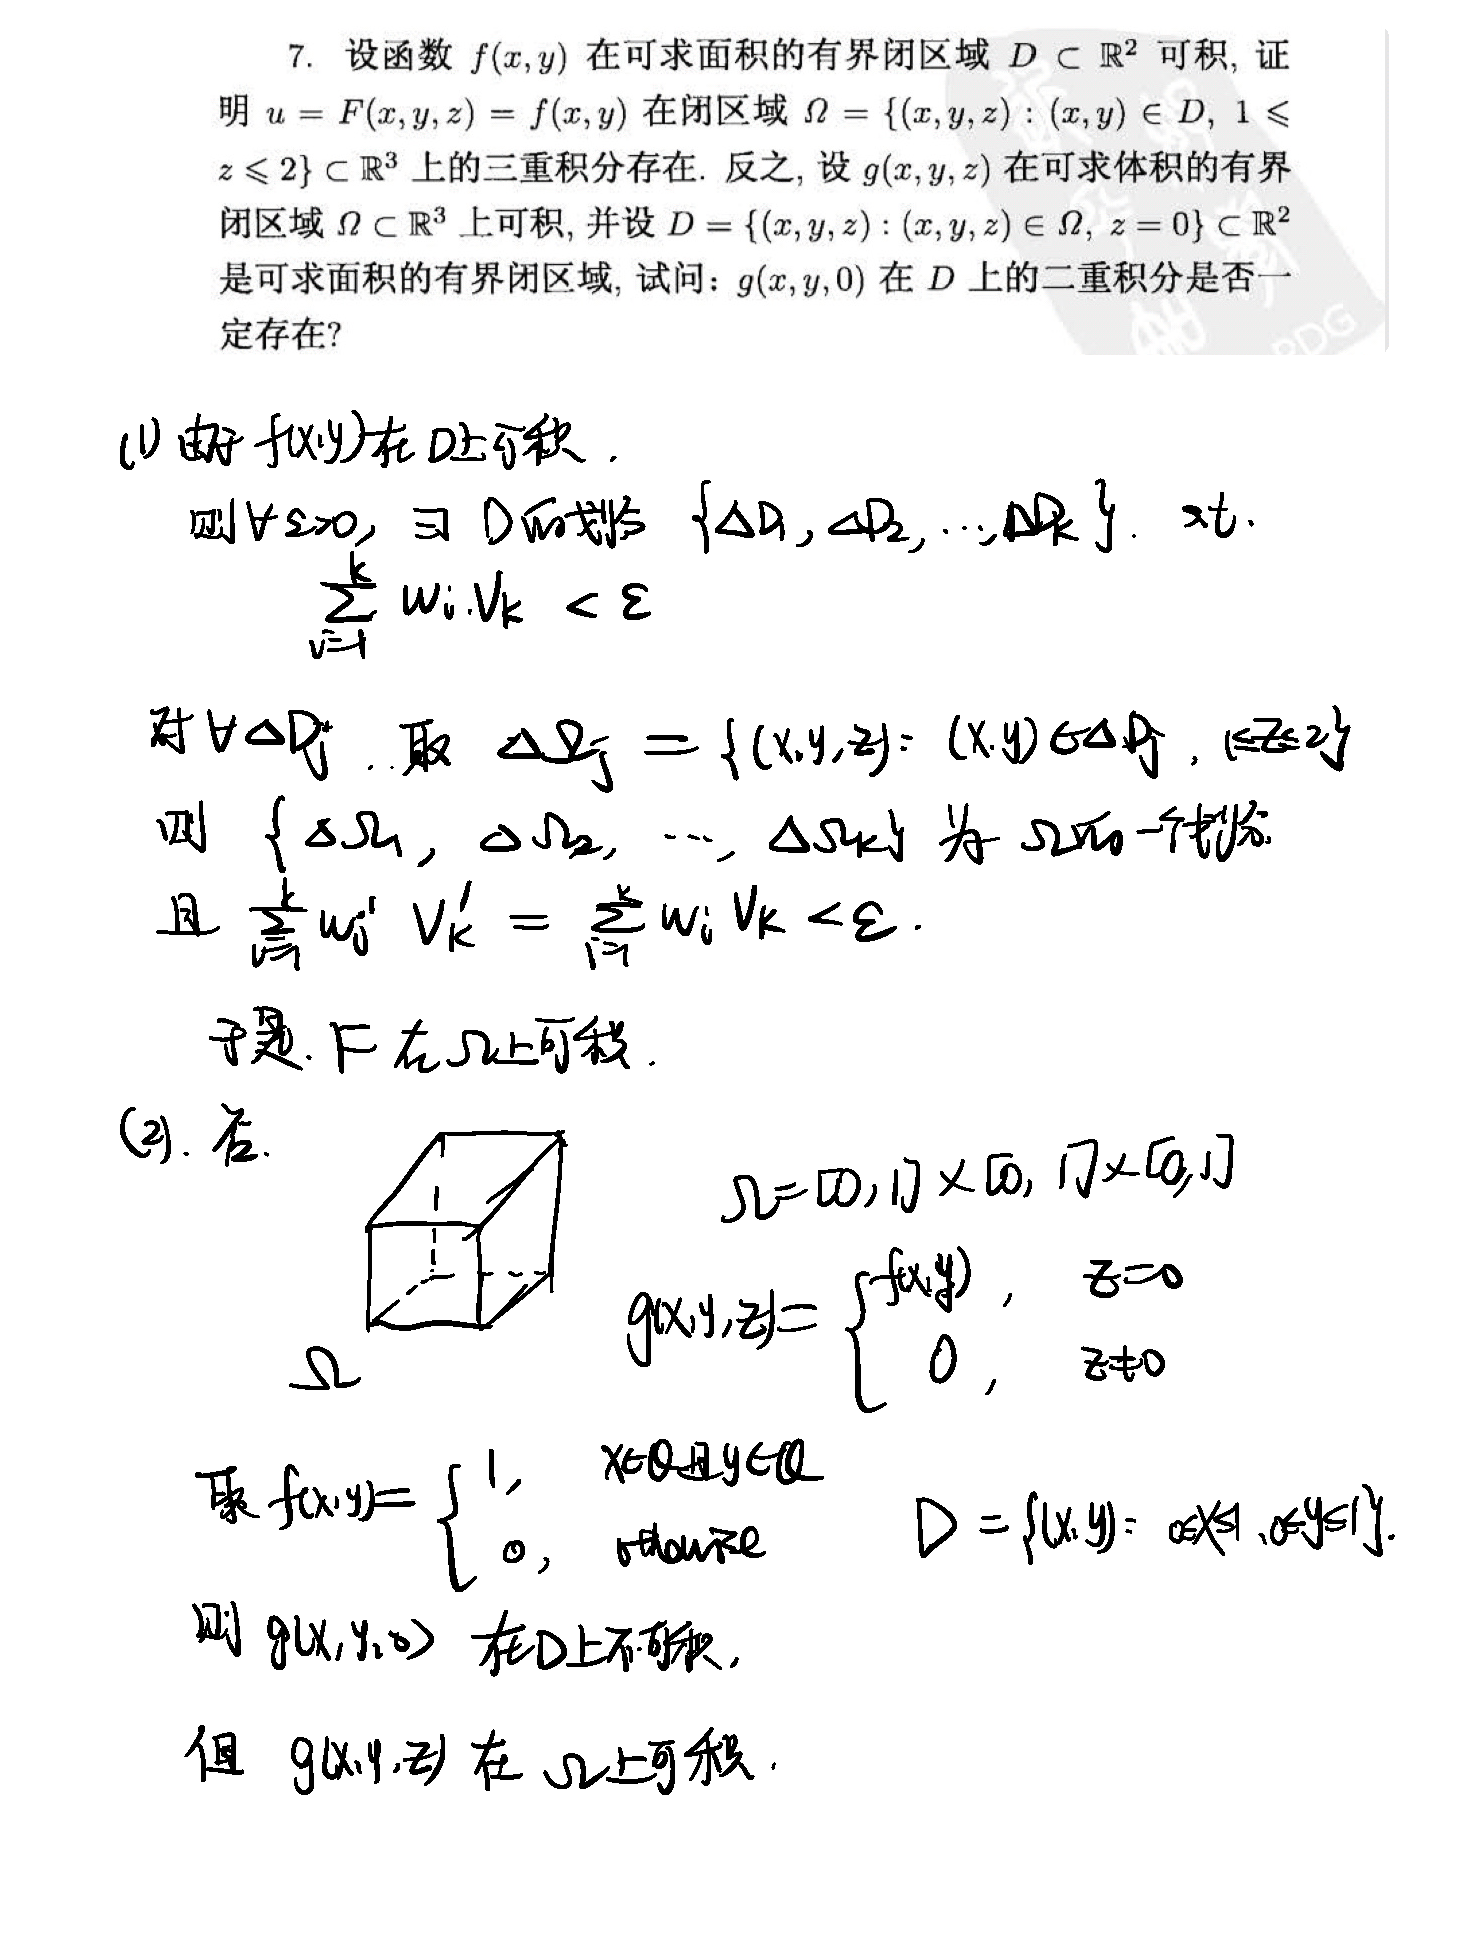 7. 设函数 f(x,y) 在可求面积的有界闭区域 D ⊂ ℝ² 可积, 证
明 u = F(x,y,z) = f(x,y) 在闭区域 Ω = {(x,y,z) : (x,y) ∈ D, 1 ⩽
z ⩽ 2} ⊂ ℝ³ 上的三重积分存在. 反之, 设 g(x,y,z) 在可求体积的有界
闭区域 Ω ⊂ ℝ³ 上可积, 并设 D = {(x,y,z) : (x,y,z) ∈ Ω, z = 0} ⊂ ℝ²
是可求面积的有界闭区域, 试问: g(x,y,0) 在 D 上的二重积分是否一
定存在?
(1) 由于 f(x,y) 在 D 上可积.
则 ∀ε>0, ∃ D 的划分 {ΔD₁, ΔD₂, ..., ΔDₖ}. st.
∑ᵢ₌₁ᵏ wᵢ·Vₖ < ε
对 ∀ΔDⱼ.. 取 ΔΩⱼ = {(x,y,z): (x,y)∈ΔDⱼ, 1≤z≤2}
则 {ΔΩ₁, ΔΩ₂, ..., ΔΩₖ} 为 Ω 的一个划分.
且 ∑ᵢ₌₁ᵏ wⱼ' Vₖ' = ∑ᵢ₌₁ᵏ wᵢ Vₖ < ε.
于是. F 在 Ω 上可积.
(2). 否.
Ω = [0,1]×[0,1]×[0,1]
g(x,y,z) = { f(x,y), z=0
0, z≠0
Ω
取 f(x,y) = { 1, x∈Q且y∈Q
0, otherwise
D = {(x,y): 0≤x≤1, 0≤y≤1}.
则 g(x,y,0) 在 D 上不可积,
但 g(x,y,z) 在 Ω 上可积.